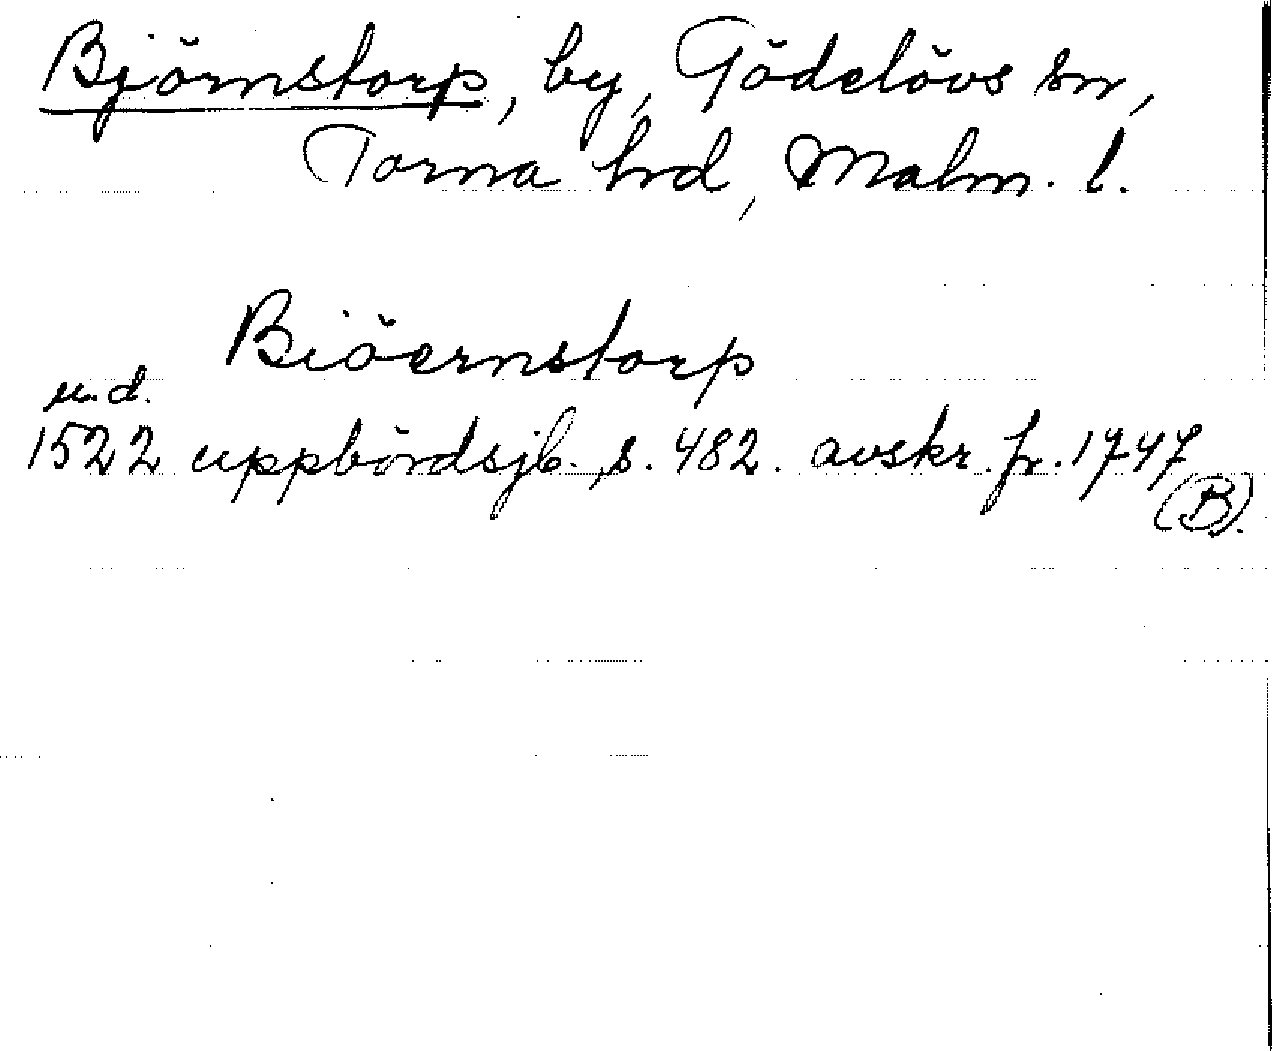 Björnstorp, by, Gödelövs sn,
Torna hrd, Malm. l.
Biöernstorp
u.d.
1522 uppbördsjb. s. 482. avskr. fr. 1747
(B).